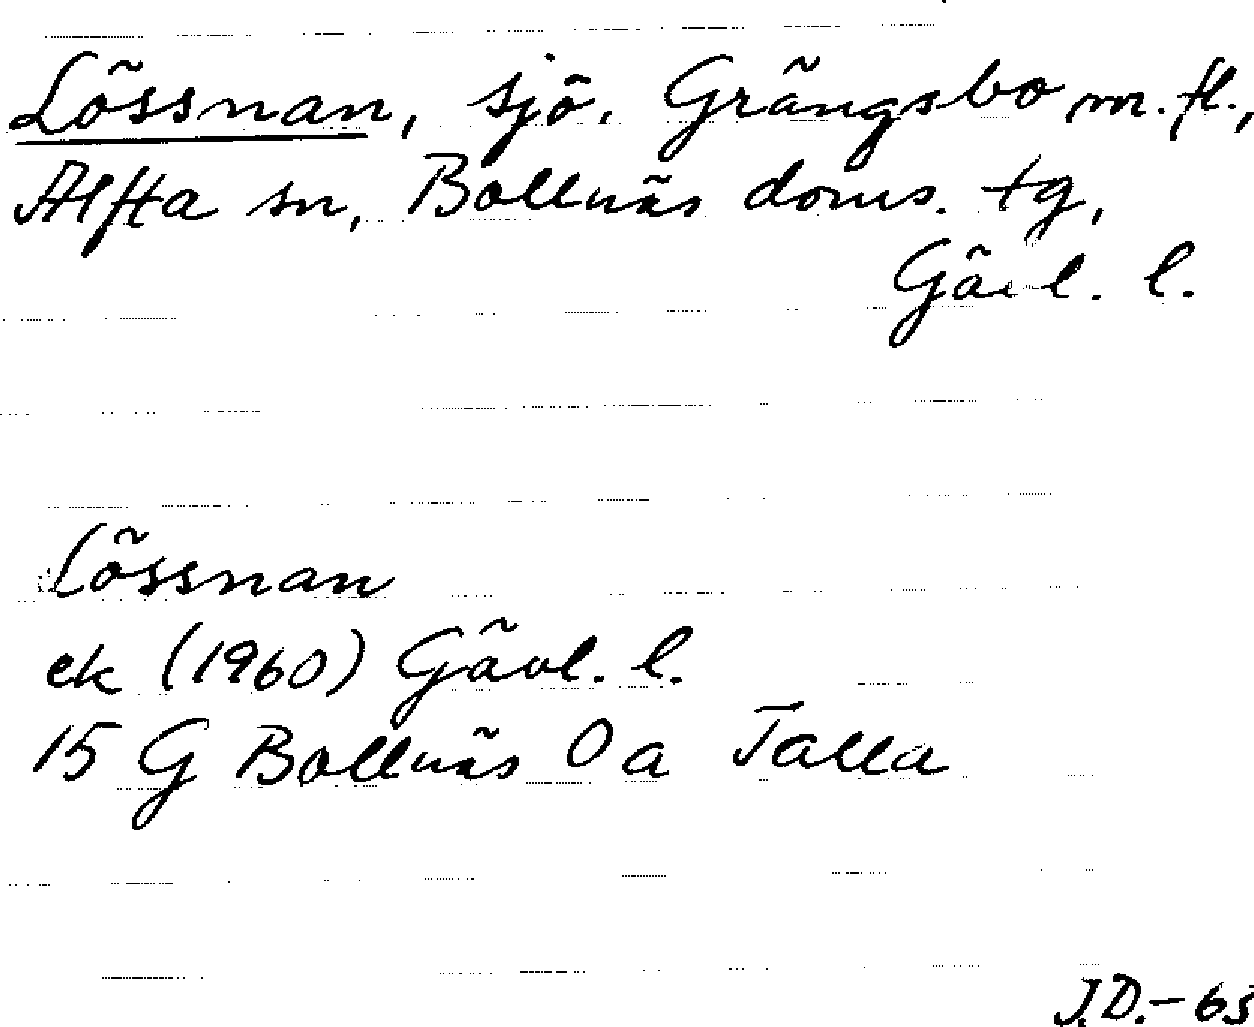 Lössnan, sjö. Grängsbo m.fl.,
Alfta sn, Bollnäs doms. tg,
Gävl. l.
Lössnan
ek (1960) Gävl. l.
15 G Bollnäs 0 a Talla
J.D.-63